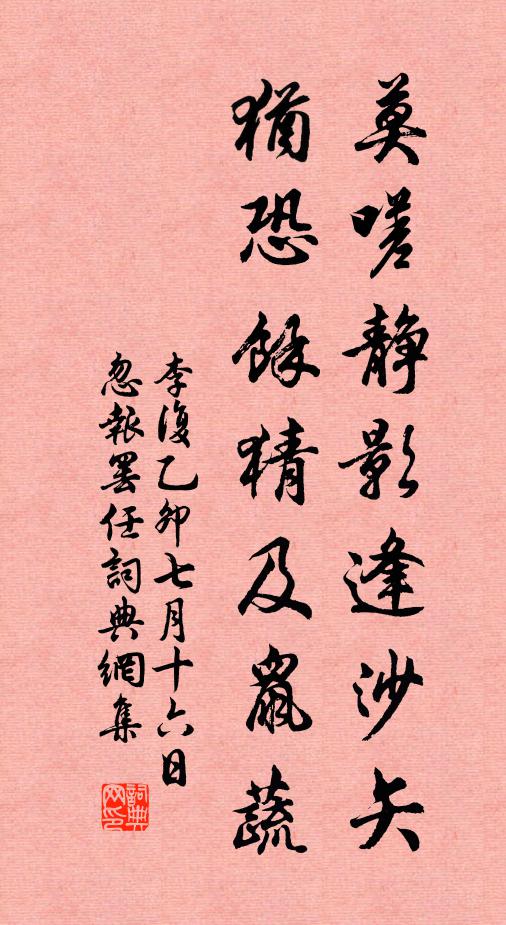 莫嗟静影逢沙矢
犹恐餘猜及鼠蔬
李復乙卯七月十六日
忽報罢任詞典網集
詞典網印